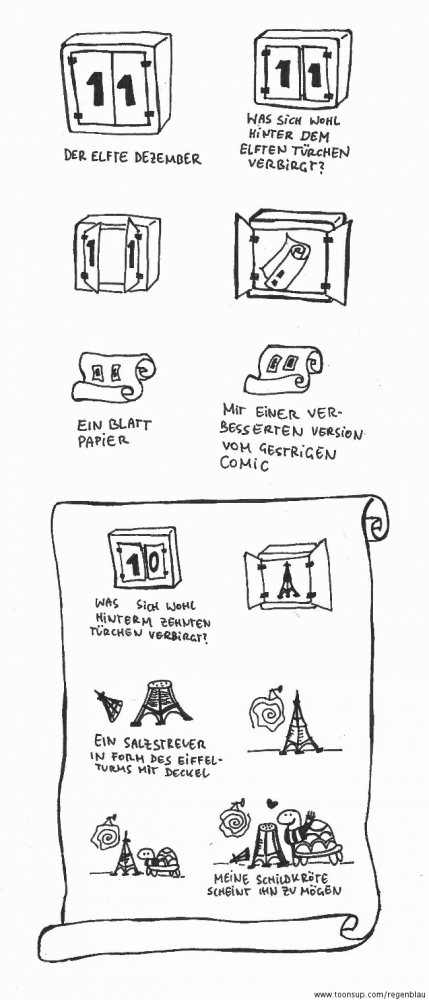 11
DER ELFTE DEZEMBER
11
WAS SICH WOHL
HINTER DEM
ELFTEN TÜRCHEN
VERBIRGT?
1 1
EIN BLATT
PAPIER
MIT EINER VER-
BESSERTEN VERSION
VOM GESTRIGEN
COMIC
10
WAS SICH WOHL
HINTERM ZEHNTEN
TÜRCHEN VERBIRGT?
EIN SALZSTREUER
IN FORM DES EIFFEL-
TURMS MIT DECKEL
MEINE SCHILDKRÖTE
SCHEINT IHN ZU MÖGEN
www.toonsup.com/regenblau